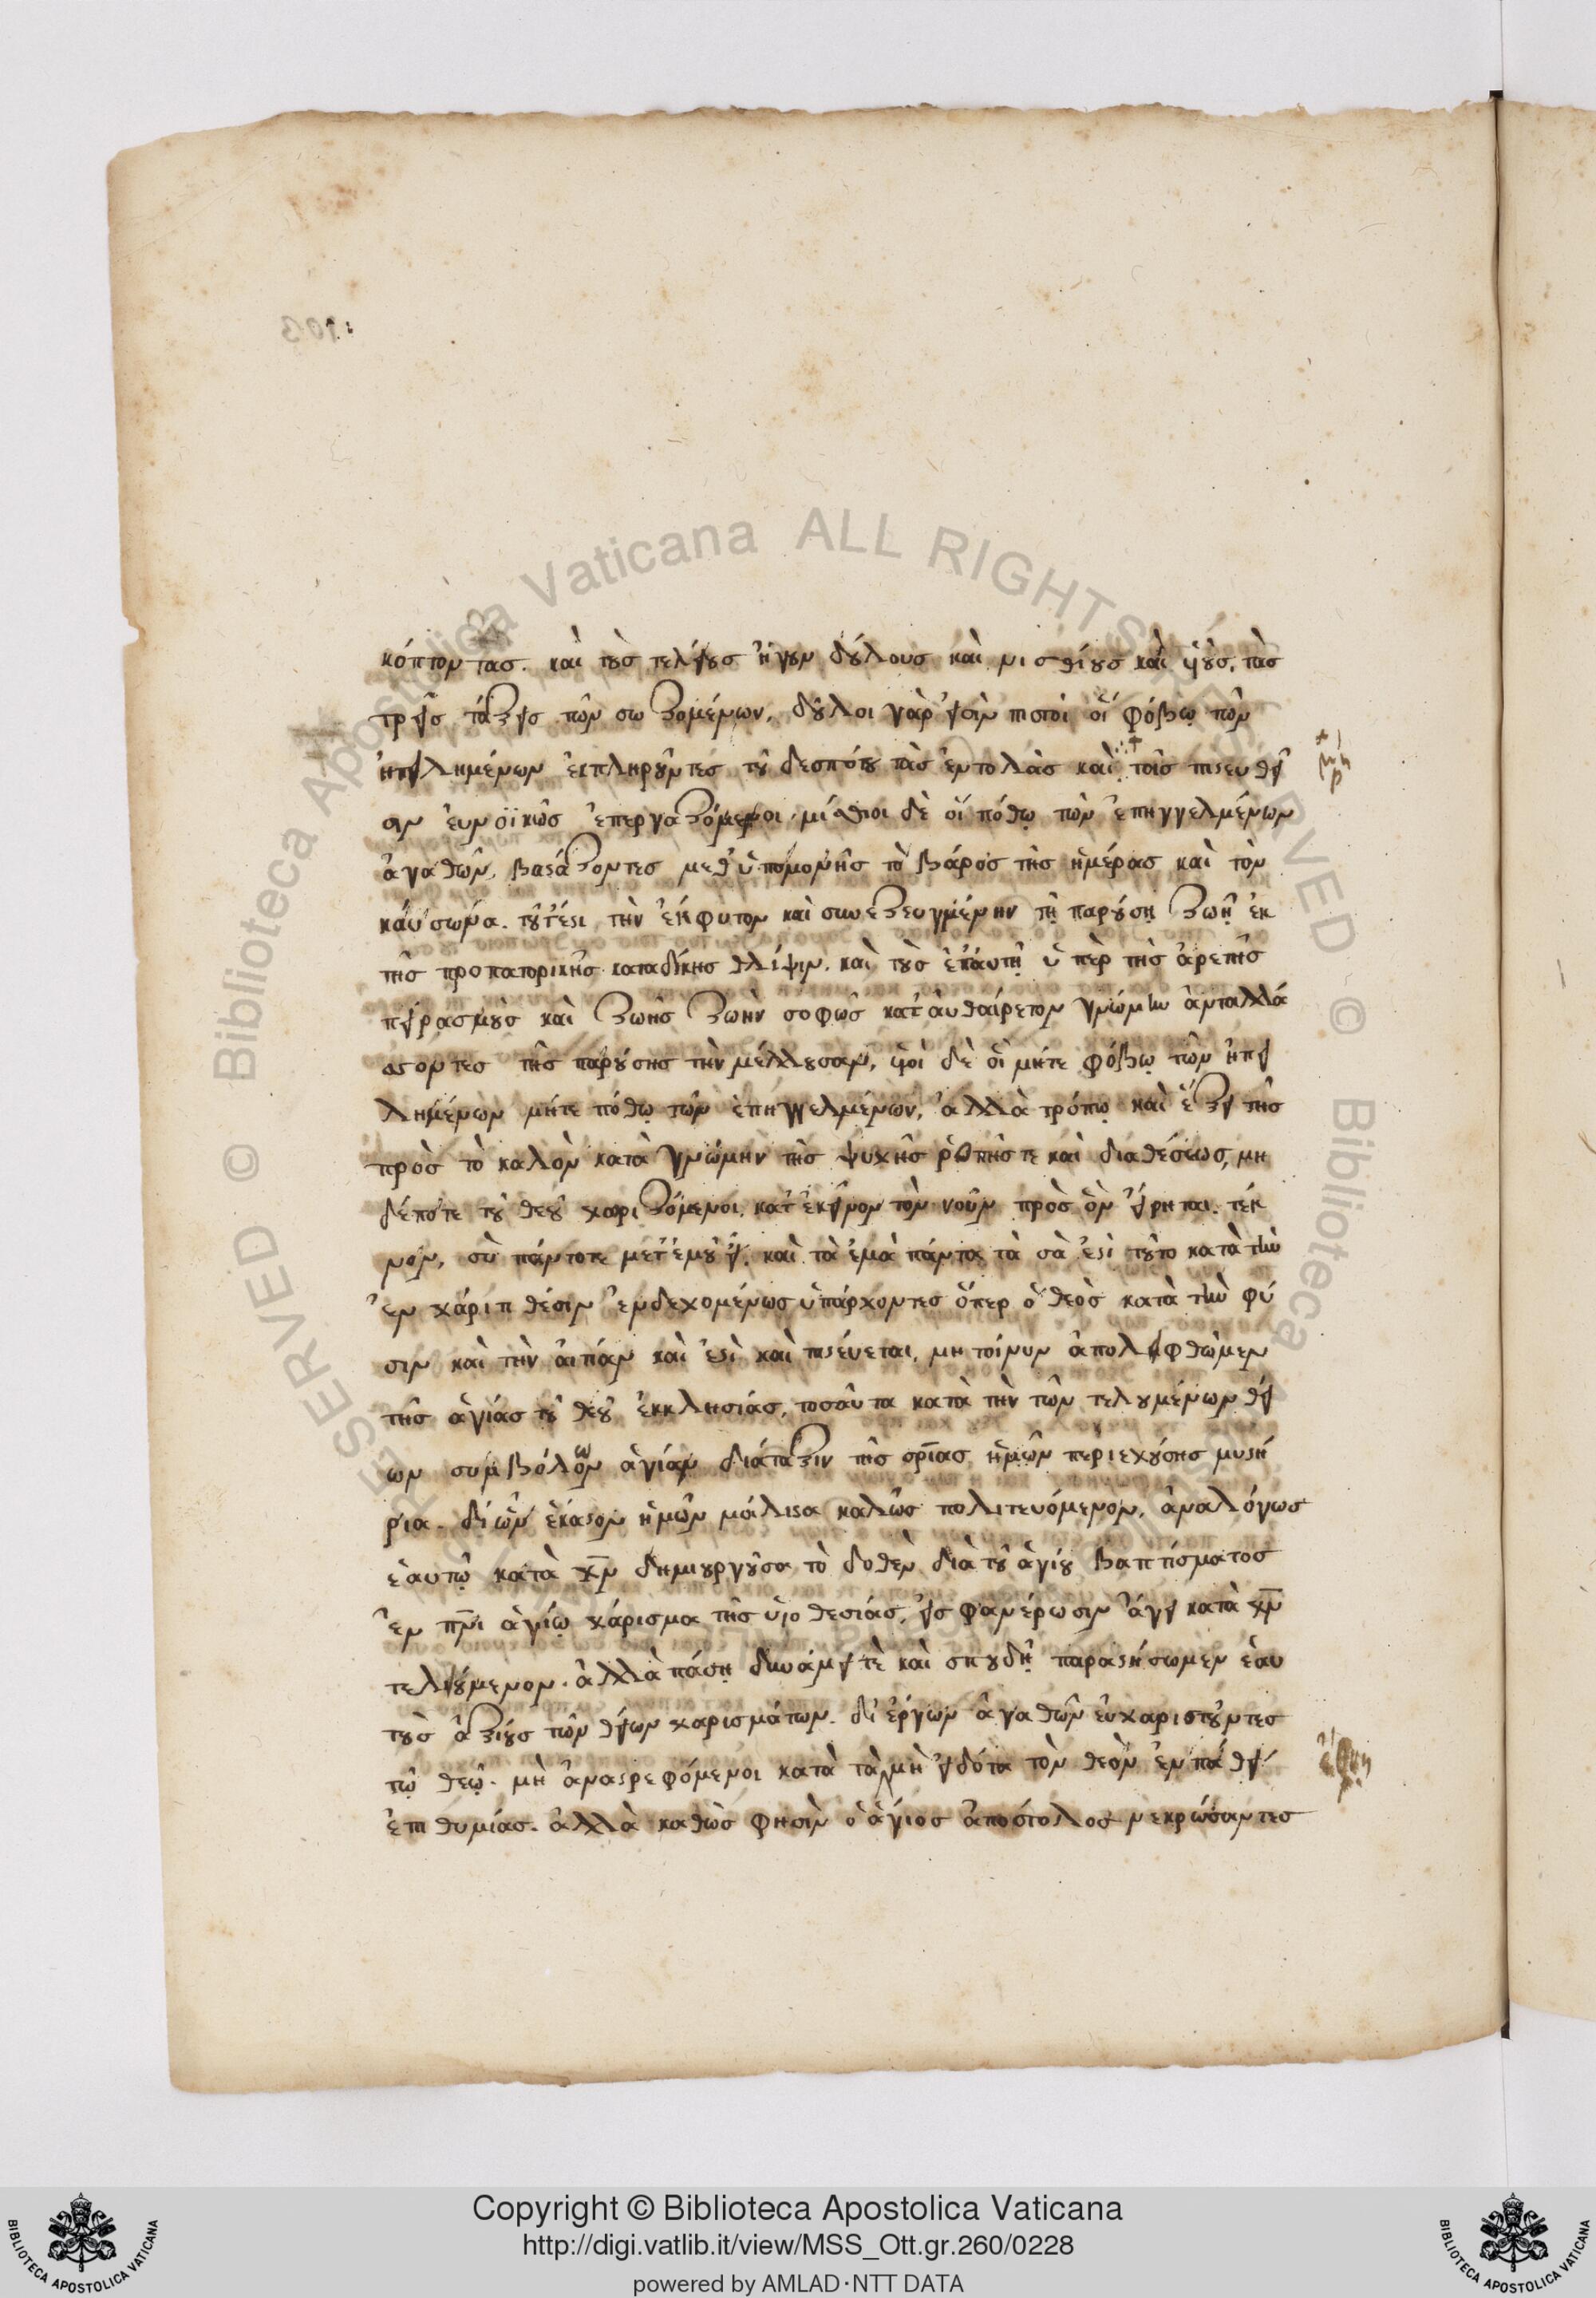 κόπτοντας. καὶ τοὺς τελείους ἤγουν δούλους καὶ μισθίους καὶ υἱοὺς, τὰς
τρεῖς τάξεις τῶν σωζομένων, δοῦλοι γὰρ εἰσὶν πιστοὶ οἱ φόβῳ τῶν
ἠπειλημένων ἐκπληροῦντες τοῦ δεσπότου τὰς ἐντολὰς καὶ τοῖς πιστευθεῖ
σιν εὐνοϊκῶς ἐπεργαζόμενοι, μίσθιοι δὲ οἱ πόθῳ τῶν ἐπηγγελμένων
ἀγαθῶν, βαστάζοντες μεθ' ὑπομονῆς τὸ βάρος τῆς ἡμέρας καὶ τὸν
καύσωνα. τουτέστι τὴν ἔμφυτον καὶ συνεζευγμένην τῇ παρούσῃ ζωῇ ἐκ
τῆς προπατορικῆς καταδίκης θλίψιν. καὶ τοὺς ἐπ' αὐτῇ ὑπὲρ τῆς ἀρετῆς
πειρασμοὺς καὶ ζωῆς ζωὴν σοφῶς κατ' αὐθαίρετον γνώμην ἀνταλλά
σσοντες τῆς παρούσης τὴν μέλλουσαν, υἱοὶ δὲ οἱ μήτε φόβῳ τῶν ἠπει
λημένων μήτε πόθῳ τῶν ἐπηγγελμένων, ἀλλὰ τρόπῳ καὶ ἕξει τῆς
πρὸς τὸ καλὸν κατὰ γνώμην τῆς ψυχῆς ῥοπῆς τε καὶ διαθέσεως, μη
δέποτε τοῦ θεοῦ χωριζόμενοι, κατ' ἐκεῖνον τὸν νοῦν πρὸς ὃν εἴρηται. τέκ
νον, σὺ πάντοτε μετ' ἐμοῦ εἶ, καὶ τὰ ἐμὰ πάντα τὰ σὰ ἐστὶ τοῦτο κατὰ τὴν
ἐν χάριτι θέσιν ἐνδεχομένως ὑπάρχοντες ὅπερ ὁ θεὸς κατὰ τὴν φύ
σιν καὶ τὴν αἰτίαν καὶ ἐστὶ καὶ πιστεύεται, μὴ τοίνυν ἀπολειφθῶμεν
τῆς ἁγίας τοῦ θεοῦ ἐκκλησίας, τοσαῦτα κατὰ τὴν τῶν τελουμένων θεί
ων συμβόλων ἁγίαν διάταξιν τῆς σρίας ἡμῶν περιεχούσης μυστή
ρια. δι' ὧν ἕκαστον ἡμῶν μάλιστα καλῶς πολιτευόμενον, ἀναλόγως
ἑαυτῷ κατὰ χν δημιουργοῦσα τὸ δοθὲν διὰ τοῦ ἁγίου βαπτίσματος
ἐν πνι ἁγίῳ χάρισμα τῆς υἱοθεσίας, εἰς φανέρωσιν ἄγει κατὰ χν
τελειούμενον. ἀλλὰ πάσῃ δυνάμει τὲ καὶ σπουδῇ παραστήσωμεν ἑαυ
τοὺς ἀξίους τῶν θείων χαρισμάτων. δι' ἔργων ἀγαθῶν εὐχαριστοῦντες
τῷ θεῷ. μὴ ἀναστρεφόμενοι κατὰ τὰ μὴ εἰδότα τὸν θεὸν ἐν πάθει
ἔθνη
ἐπιθυμίας. ἀλλὰ καθὼς φησὶν ὁ ἅγιος ἀπόστολος νεκρώσαντες
Copyright © Biblioteca Apostolica Vaticana
http://digi.vatlib.it/view/MSS_Ott.gr.260/0228
powered by AMLAD·NTT DATA